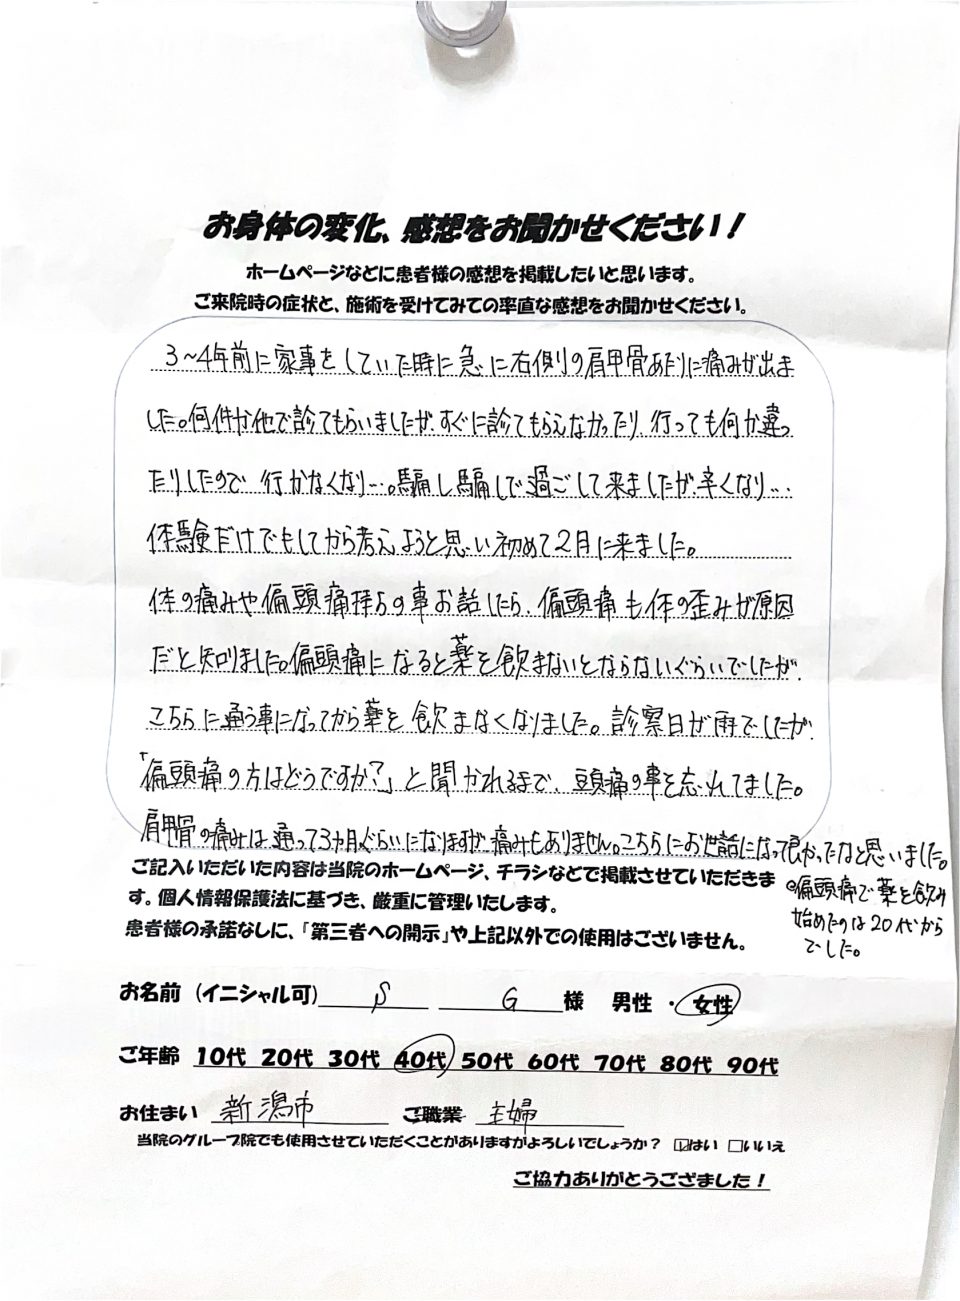 お身体の変化、感想をお聞かせください！
ホームページなどに患者様の感想を掲載したいと思います。
ご来院時の症状と、施術を受けてみての率直な感想をお聞かせください。
3〜4年前に家事をしていた時に急に右側の肩甲骨あたりに痛みが出ま
した。何件か他で診てもらいましたが、すぐに診てもらえなかったり、行っても何か違っ
たりしたので 行かなくなり…。騙し騙しで過ごして来ましたが、辛くなり…
体験だけでもしてから考えようと思い初めて2月に来ました。
体の痛みや偏頭痛持ちの事お話したら、偏頭痛も体の歪みが原因
だと知りました。偏頭痛になると薬を飲まないとならないぐらいでしたが、
こちらに通う事になってから薬を飲まなくなりました。診察日が雨でしたが、
「偏頭痛の方はどうですか？」と聞かれるまで、頭痛の事を忘れてました。
肩甲骨の痛みは通って3ヵ月ぐらいになりますが、痛みもありません。こちらにお世話になって良かったなと思いました。
ご記入いただいた内容は当院のホームページ、チラシなどで掲載させていただきま
す。個人情報保護法に基づき、厳重に管理いたします。
患者様の承諾なしに、「第三者への開示」や上記以外での使用はございません。
◎偏頭痛で薬を飲み
始めたのは20代から
でした。
お名前（イニシャル可） S G 様 男性 ・ 女性
ご年齢 10代 20代 30代 40代 50代 60代 70代 80代 90代
お住まい 新潟市 ご職業 主婦
当院のグループ院でも使用させていただくことがありますがよろしいでしょうか？ ☑はい □いいえ
ご協力ありがとうござました！